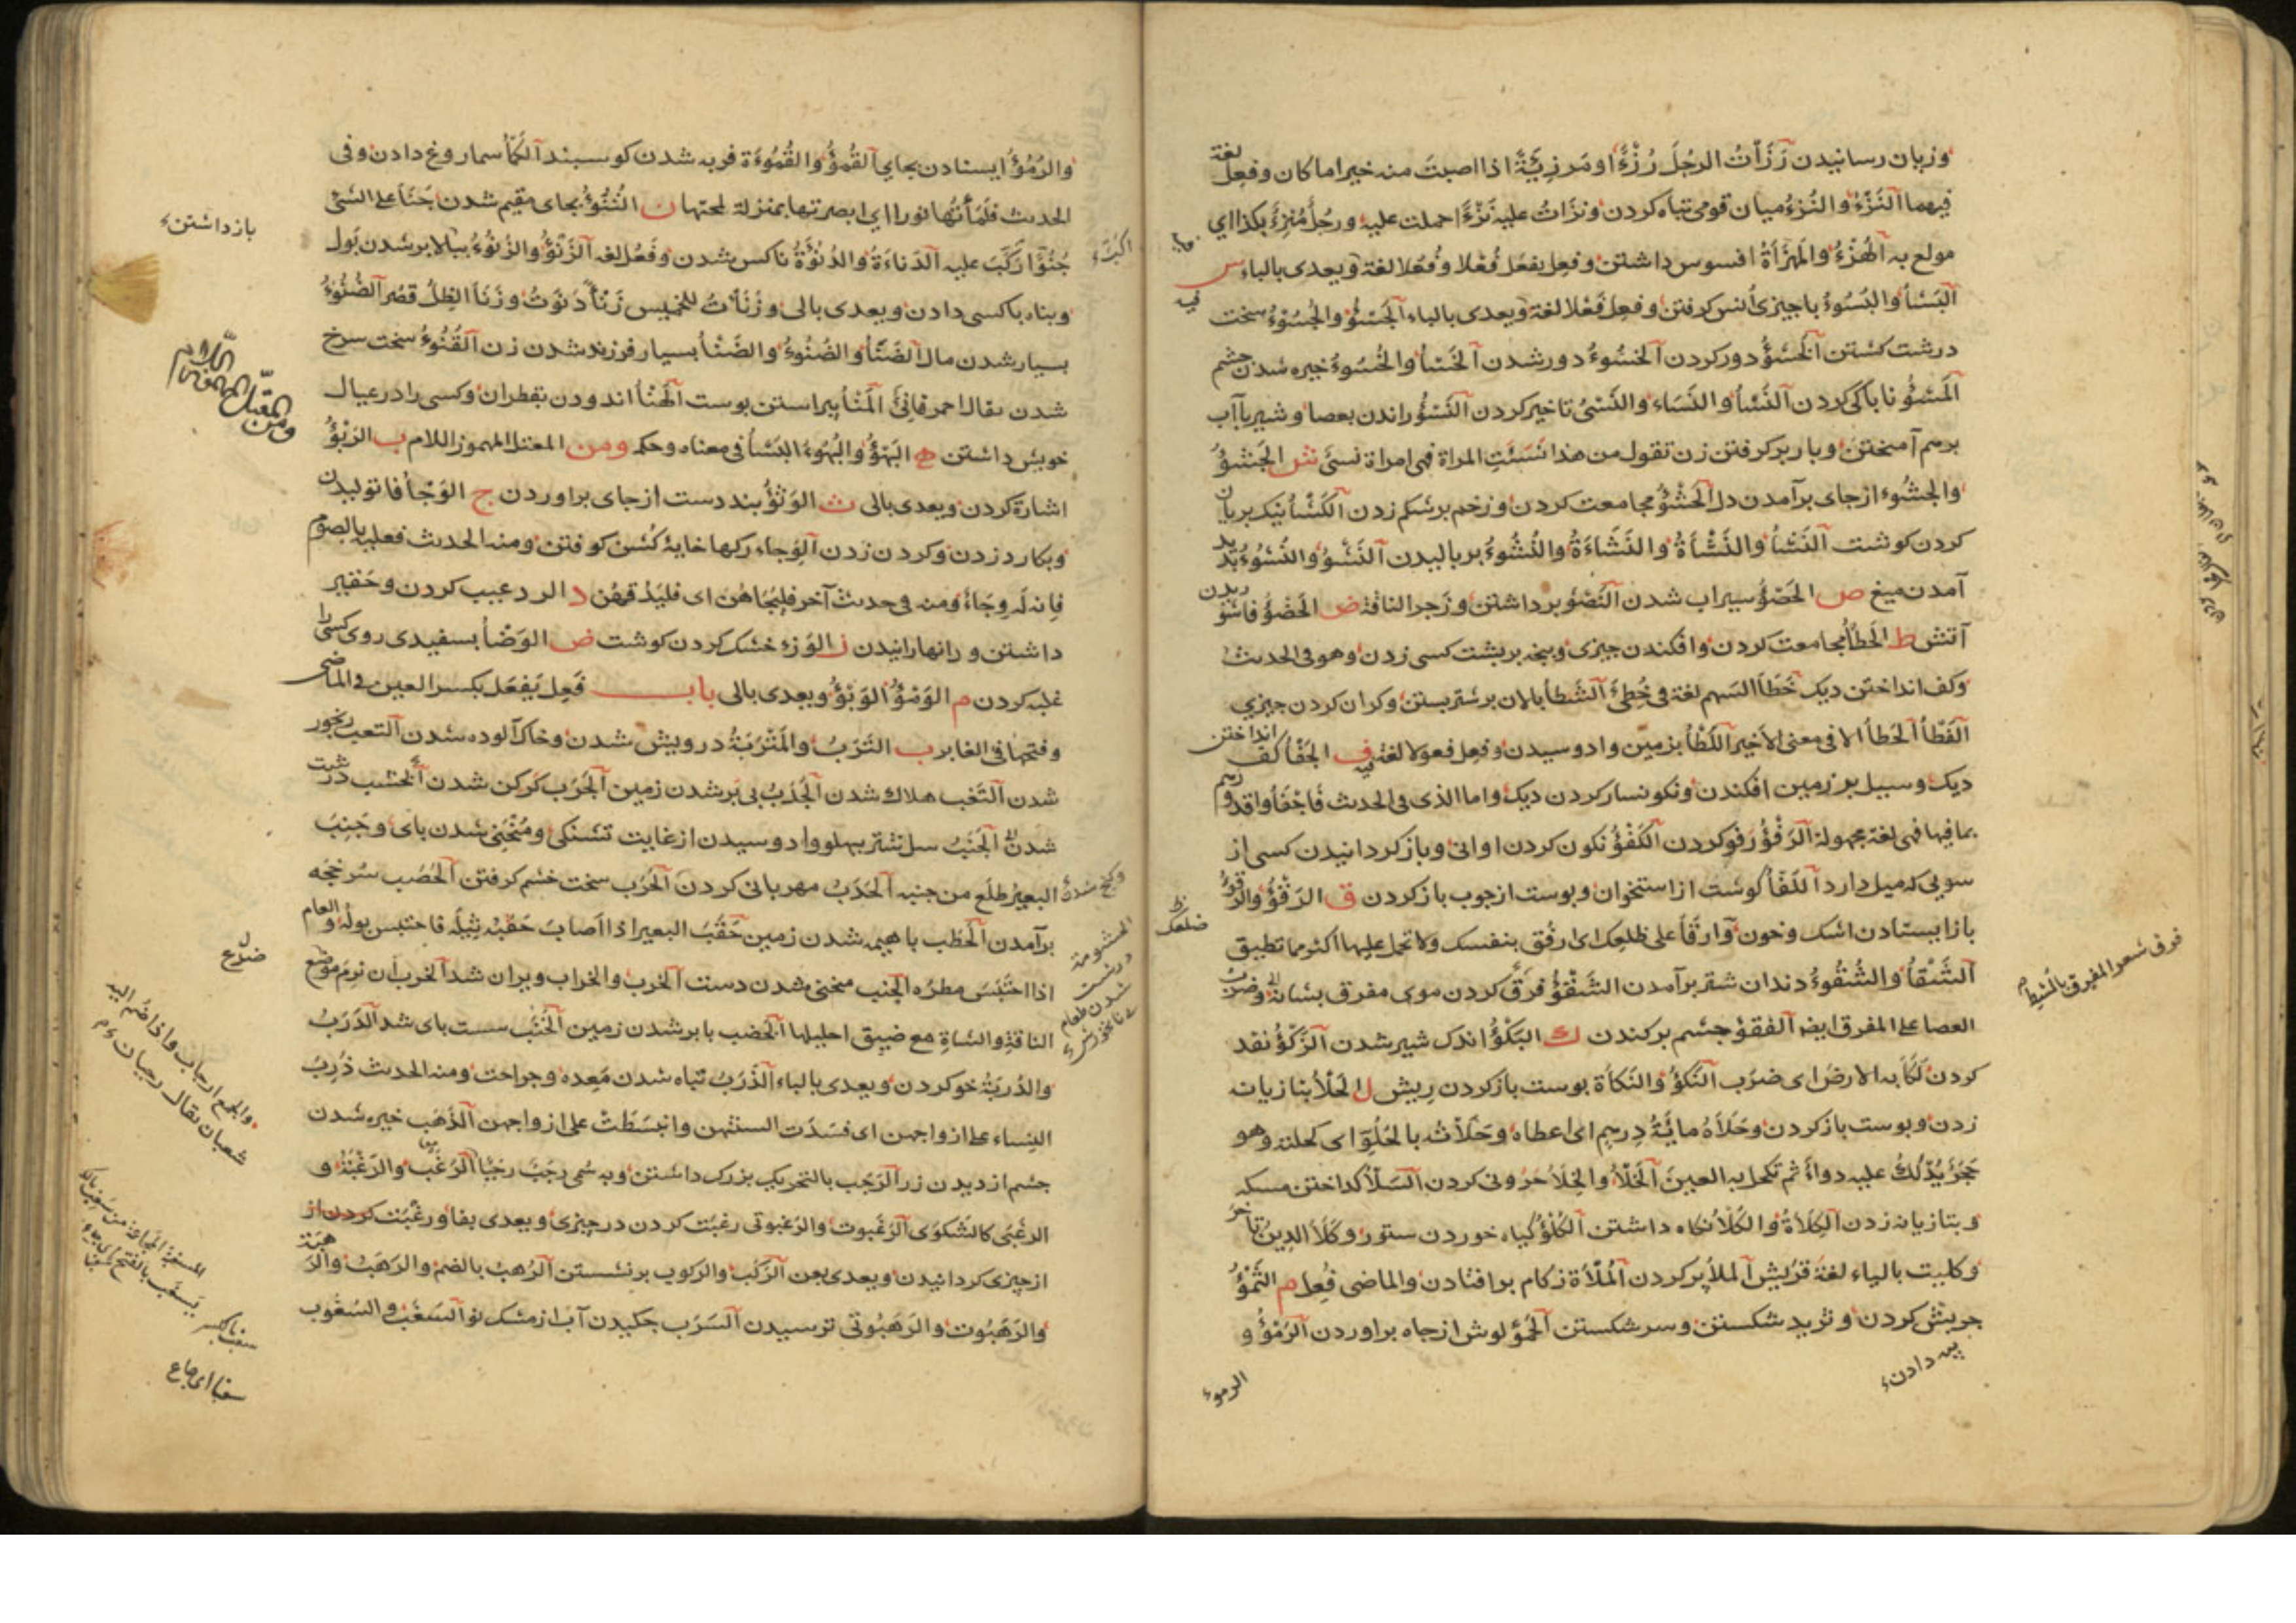 وزیان رسانیدن رَزَأتُ الرجُلَ رُزْءًا ومَرزِیَّةً اذا اصبتَ منه خیرا ما کان وفعِل لغة
فیهما النَزْءُ والنُزوءُ میان قومی تباه کردن ونزَاتُ علیه نَزْءًا حملت علیه ورجُلٌ مُنزَءٌ بکذا ای
مولع به الهُزْءُ والمَهزَأةُ افسوس داشتن وفعِل یفعَل فُعْلا وفُعُلا لغة ویعدی بالباء س
البَسْأُ والبُسُوءُ باچیزی انس کرفتن وفعِل فَعْلا لغة ویعدی بالباء الجَسْؤُ والجُسُوءُ سخت
درشت کشتن الخَسْؤُ دور کردن الخسُوءُ دور شدن الخَسْأُ والخُسُوءُ خیره شدن چشم
المَسْؤُ ناباکی کردن النَسْأُ والنَسَاء والنَسْئُ تاخیر کردن النَسْؤُ راندن بعصا وشیر باآب
برهم آمیختن وبار برکرفتن زن تقول من هذا نُسِئَتِ المراة فهی امراة نسئ ش الجَشْؤُ
والجشُوء ازجای برآمدن دل الحَشْؤُ مجامعت کردن وزخم برشکم زدن الکَشْأُ نیک بریان
کردن کوشت النَشْأُ والنَشْأةُ والنَشَاءَةُ والنُشُوءُ بربالیدن النَشْوُ والنُشُوءُ پدید
آمدن میغ ص الحَصْؤُ سیراب شدن النَصْؤُ برداشتن وزجر الناقة ض الحَضْؤُ فاشوریدن
آتش ط الحَطْأُ مجامعت کردن وافکندن چیزی وپنجه برپشت کسی زدن وهو فی الحدیث
وکف انداختن دیک خَطَأ السَهم لغة فی خُطِئَ الشَطأُ بالان برشتر بستن وکران کردن چیزی
الفَطْأُ الحَطأُ الا فی معنی الاخیر اللَطْأُ بزمین وادوسیدن وفعِل فعولا لغة فیه ف الجَفْأ کف انداختن
دیک وسبیل برزمین افکندن ونکونسار کردن دیک واما الذی فی الحدیث فَاجْفَأُوا قدورهم
بما فیها فهی لغة مجهولة الرَفْؤُ رفو کردن الکَفْؤُ نکون کردن اوانی وباز کردانیدن کسی از
سویی که میل دارد اللَفَأ کوشت از استخوان وپوست ازچوب بازکردن ق الرَقْؤُ والرُقوءُ
بازایستادن اشک وخون وَارقَأ علی ظلعِک ای ارفُق بنفسک ولا تحمل علیها اکثر مما تطیق
الشَقْأُ والشُقُوءُ دندان شتر برآمدن الشَقْؤُ فَرق کردن موی مفرق بشانه وضرب
العصا علی المفرق ایضا الفقْوُ چشم برکندن ك البَکْؤُ اندک شیر شدن الزَکْؤُ نقد
کردن لَکَأ به الارضَ ای ضرَب النَکؤُ والنَکأة پوست بازکردن رِیش ل الحَلأُ بتازیانه
زدن وپوست بازکردن وحَلَأهُ مائةُ دِرهم ای اعطاه وحَلَأتُه بالحُلوءِ ای کحلته وهو
حَجَرٌ یُدْلَکُ علیه دواءٌ ثم تکحل به العینَ الخَلأ والخِلأ حرونی کردن السَلأ کداختن مسکه
وبتازیانه زدن الکِلَاءةُ والکَلأ نکاه داشتن الکُلؤُ کیاه خوردن ستور وکَلَأ الدینُ تاخر
وکلیت بالیاء لغة قرَیْش الملأ پر کردن المُلاءَة زکام برافتادن والماضی فُعِل م الثَمْؤُ
چربش کردن وثرید شکستن وسرشکستن الحَمْؤُ لوش ازچاه براوردن الرَمْؤُ و
پیه دادن
الرموء
فرق شعر المفرق بالمشط
ضلعک
فیه
والرُمُؤُ ایستادن بجای القُمؤُ والقُمُوءَة فربه شدن کوسبند الکَمأ سماروغ دادن وفی
الحدیث فَلَمَأتُها نورا ای ابصرتها بمنزلة لمحتها ن التُنُوءُ بجای مقیم شدن جَنَأ علی الشئ
جُنُوًّا رَکَبَ علیه الدَناءَةُ والدُنُوْءَةُ ناکس شدن وفَعُل لغه الزَنْؤُ والزُنُوءُ ببالا برشدن بَول
وپناه باکسی دادن ویعدی بالی وزَنَأتُ للخمیس زَنْأً دَنَوتُ وزَنَأ الظِلُ قصُر الضُنُوءُ
بسیار شدن مال الضَنْأ والضُنُوءُ والضَنْأُ بسیار فرزند شدن زن القُنُوءُ سخت سرخ
شدن یقال احمر قانِئ المَنْأُ پیراستن پوست الهَنْأُ اندودن بقطران وکسی را در عیال
خویش داشتن ه البَهْؤُ والبُهُوءُ البَسْأُ فی معناه وحکمه ومن المعتل المهموز اللام ب الرَبْؤُ
اشارة کردن ویعدی بالی ث الوَثْؤُ بند دست ازجای براوردن ج الوَجْأُ فاتولیدن
وبکارد زدن وکردن زدن الوِجاء رکهاء خایهٔ کُشن کوفتن ومنه الحدیث فعلیه بالصوم
فانه لَه وِجَاءٌ ومنه فی حدیث آخر فلیَجَاهُن ای فلیَدُقهُن د الرد عیب کردن وحَقیر
داشتن و رانها رانیدن ز الوَزء خشک کردن کوشت ض الوَضْأُ بسفیدی روی کسی را
غلبه کردن م الوَمْؤُ الوَبْؤُ ویعدی بالی باب فَعِل یَفعَل بکسر العین فی الماضی
وفتحها فی الغابر ب التَرَبُ والمَتْرَبَةُ درویش شدن وخاک آلوده شدن التعب رنجور
شدن التَغَب هلاک شدن الجَدَبُ بی بَر شدن زمین الجَرَب کَرکن شدن الخشَب درشت
شدن الجَنَبُ سل شتر بپهلو وادوسیدن ازغایت تشنکی ومُنْحَنِی شدن پای وجَنِبَ
البعیرُ ظلَع من جنبه الحَدَبُ مهربانی کردن الحَرَب سخت خشم کرفتن الحَصَب سُرخجه
برآمدن الحَطَب باهیمه شدن زمین حَقِبَ البعیر اذا اصَابَ حَقَبُه ثِیلَه فاحتبس بوله والعام
اذا احتَبَسَ مطرُه الجنب منحنی شدن دست الخرب والخراب ویران شد الخرب ان نرِمَ موضع
الناقةِ والشاةِ مع ضیق احلیلها الخضب بابر شدن زمین الخَنَب سست پای شد الدَرَبُ
والدُربَةُ خو کردن ویعدی بالباء الذَرَبُ تباه شدن مَعِده وجراحت ومنه الحدیث ذَرِبَ
النِساء علی ازواجهن ای فسَدَت السنتهن وانبسَطَتْ علی ازواجهن الذَهَب خیره شدن
چشم از دیدن زر الرَجَب بالتحریک بزرک داشتن وبه سُمی رجَبٌ رجَبًا الرَغَب والرَغْبَةُ و
الرغْبَی کالشَکوَی الرَغَبوت والرَغَبوتی رغبَت کردن درچیزی ویعدی بفی ورغْبَت کردن از
ازچیزی کردانیدن ویعدی بعن الرَکْبُ والرکوب برنشستن الرُهبُ بالضم والرَهَبُ والرَهبَة
والرَهَبُوت والرَهَبُوتی ترسیدن السَرَب چکیدن آب ازمشک نو السَغَبُ والسُغُوب
بازداشتن
ضلع
والجمع ارجاب واذا ضم الیه
شعبان یقال رجبان
سغبا ای جاع